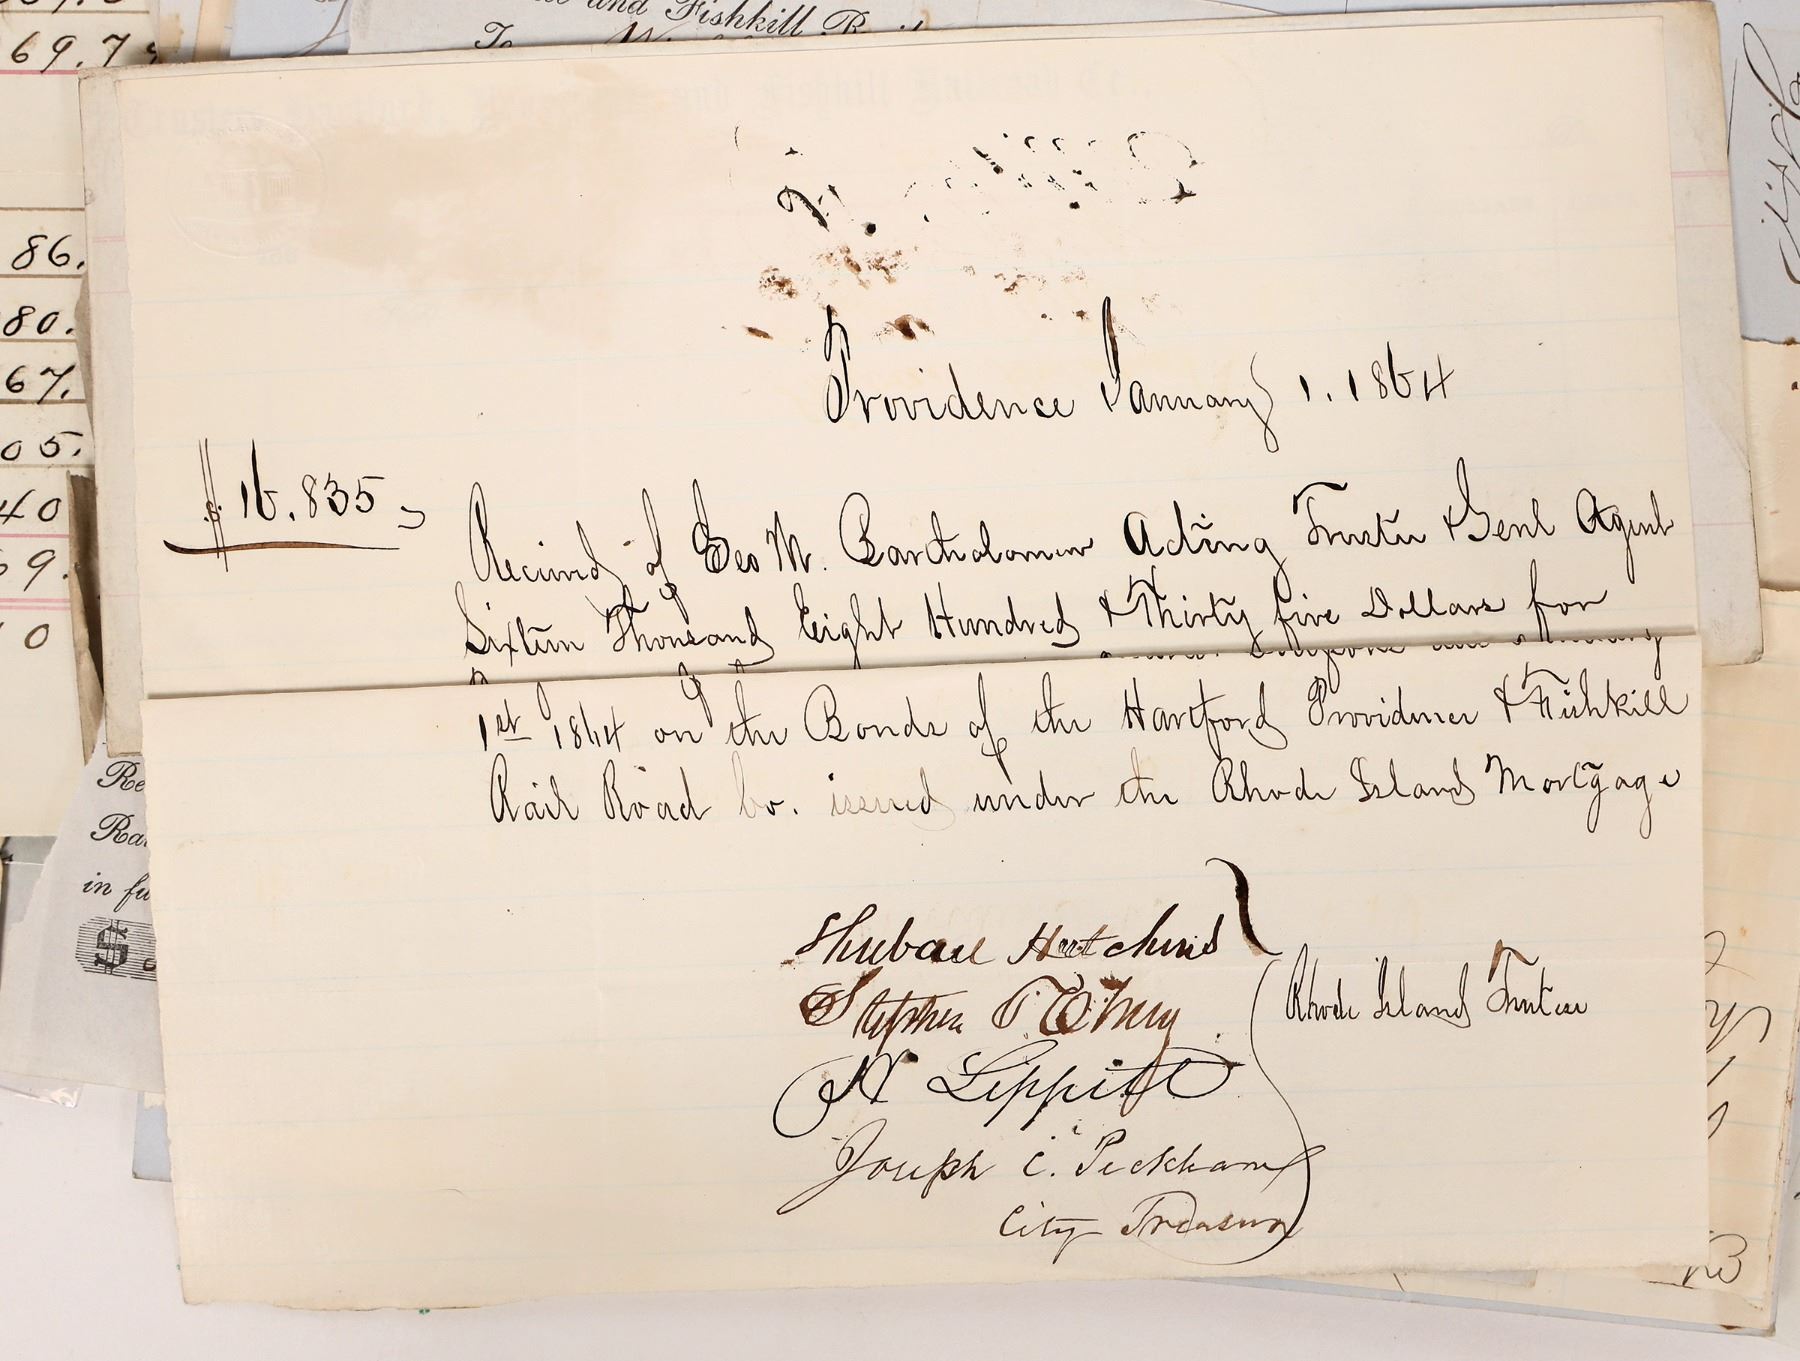 and Fishkill
69.7
86.
80.
67.
05.
40
9.
0
Providence January 1. 1864
$16.835
Received of Geo M. Bartholomew Acting Trustee & Genl Agent
Sixteen Thousand Eight Hundred & Thirty five Dollars for
Coupons due January
1st 1864 on the Bonds of the Hartford Providence & Fishkill
Rail Road Co. issued under the Rhode Island Mortgage
Shubael Hutchins
Stephen T Olney
H Lippitt
Rhode Island Trustees
Joseph C. Peckham
City Treasurer
in fu
$